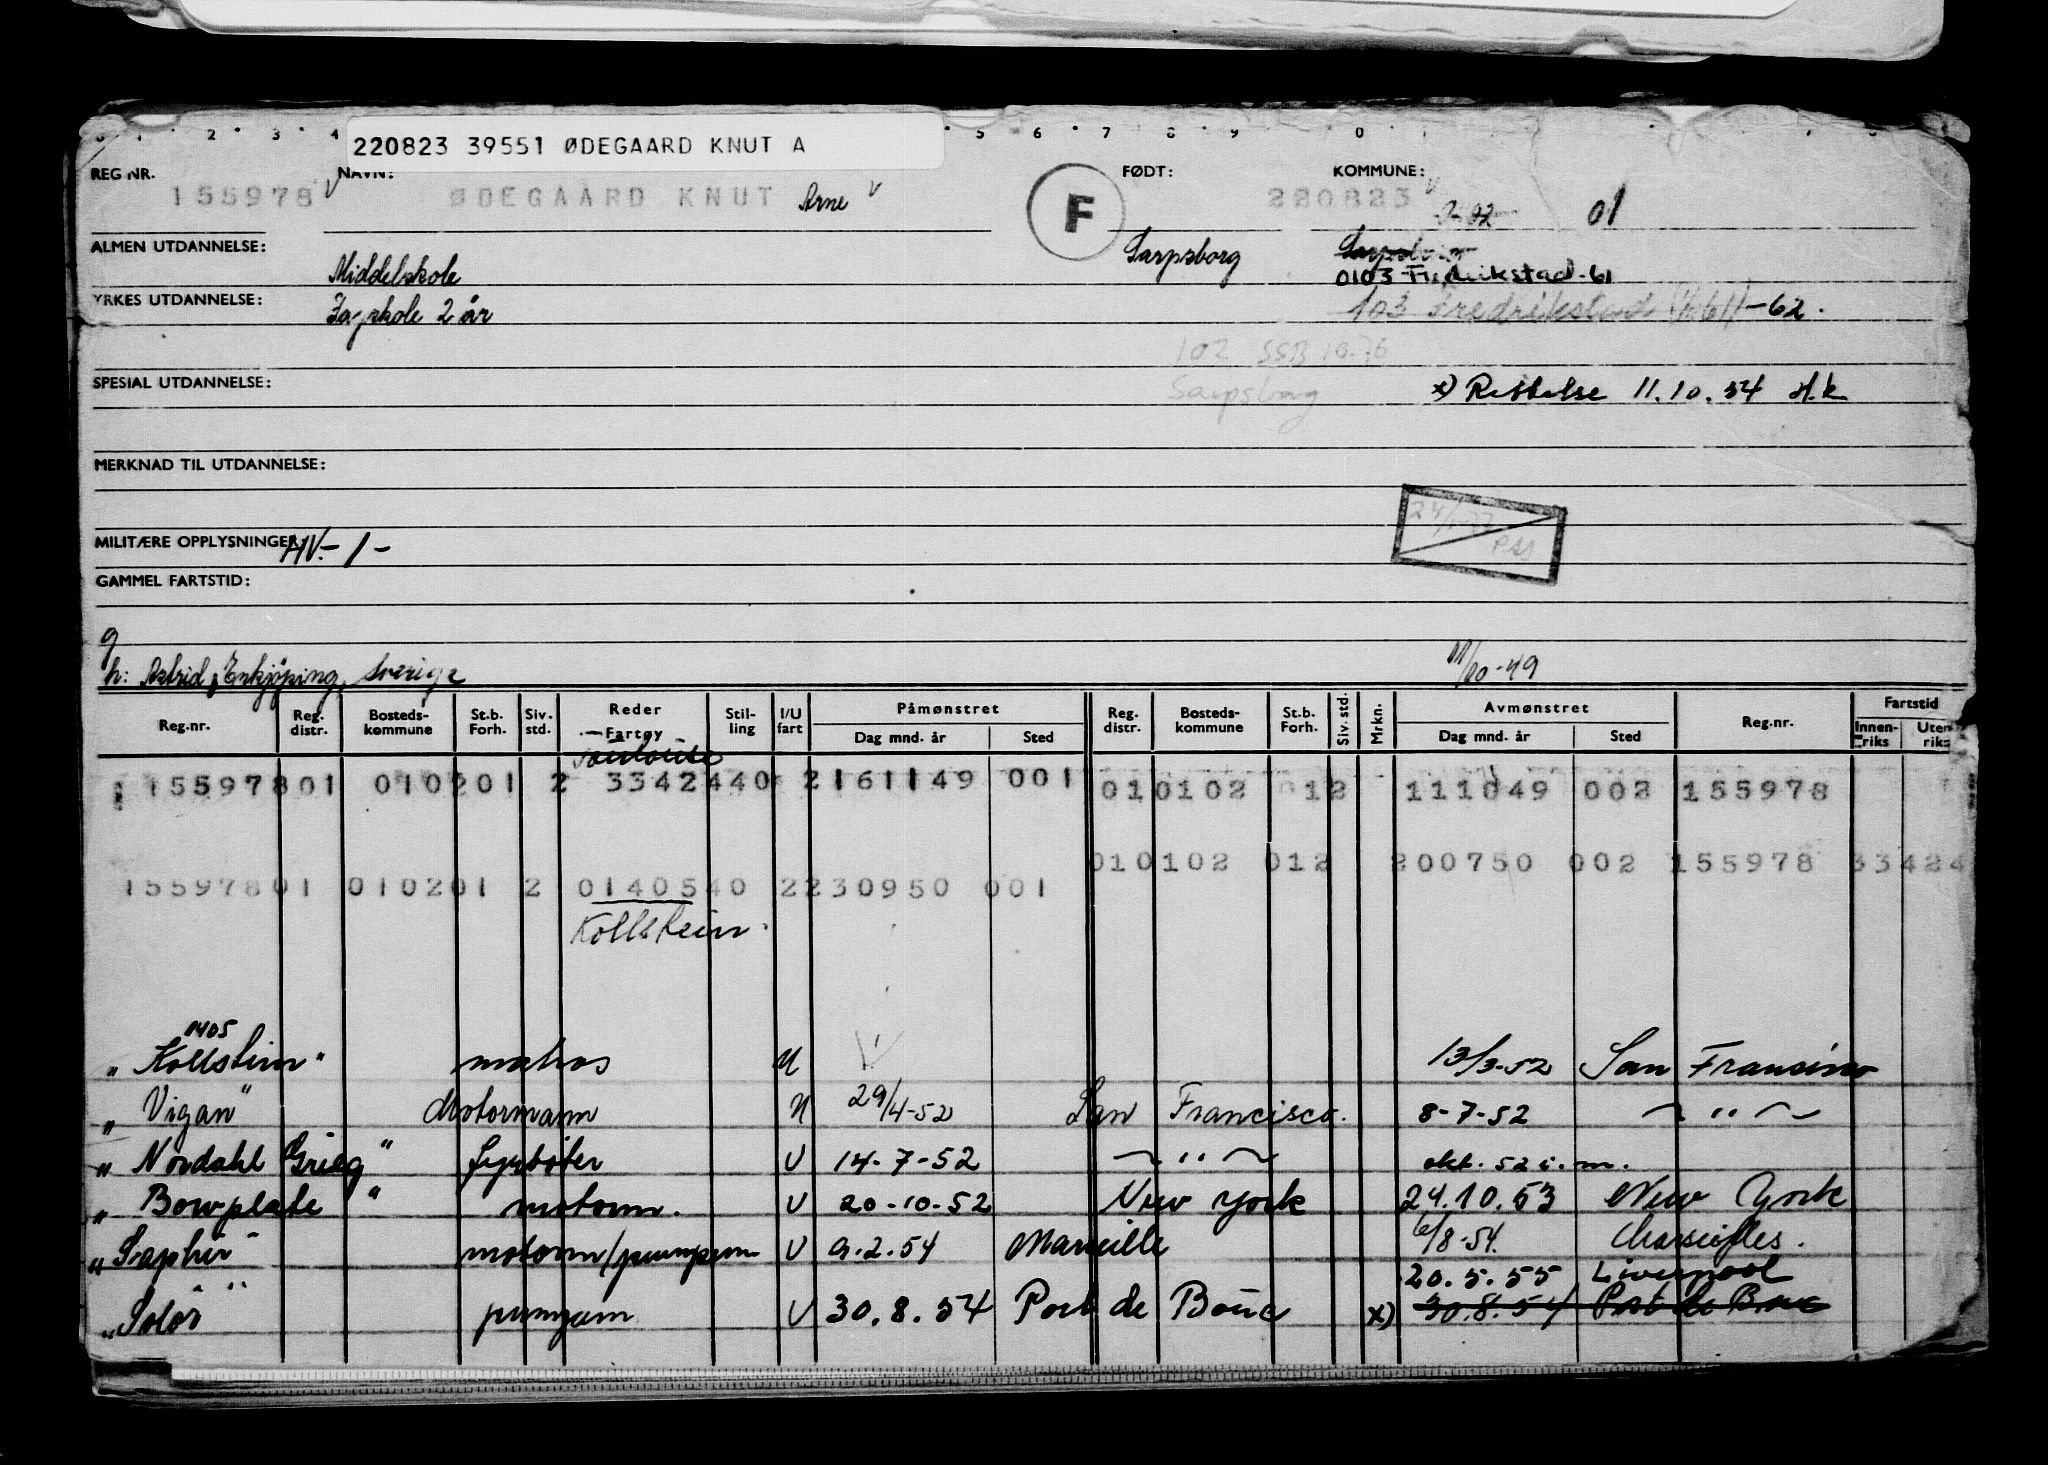 220823 39551 ØDEGAARD KNUT A
REG NR. NAVN: FØDT: KOMMUNE:
155978 ØDEGAARD KNUT Arne F 220823 01
ALMEN UTDANNELSE: Middelskole Sarpsborg Sarpsborg
0103 Fredrikstad-61
YRKES UTDANNELSE: Fagskole 2 år 103 Fredrikstad -62.
102 SSB 10.76
Sarpsborg
SPESIAL UTDANNELSE: x) Rettelse 11.10.54
MERKNAD TIL UTDANNELSE:
MILITÆRE OPPLYSNINGER: HV.-1-
GAMMEL FARTSTID:
g
h: Astrid, Enkjöping, Sverige 11/10-49
Reg.nr. Reg. distr. Bosteds-kommune St.b. Forh. Siv. std. Reder Fartøy Stil-ling I/U fart Påmønstret Dag mnd. år Sted Reg. distr. Bosteds-kommune St.b. Forh. Siv. std. Mrkn. Avmønstret Dag mnd. år Sted Reg.nr. Fartstid Innen-riks Uten riks
15597801 010201 2 3342440 2161149 001 010102 012 111049 002 155978
010102 012 200750 002 155978 33424
15597801 010201 2 0140540 2230950 001
Kollstein.
1405
"Kollstein" matros U 13/3-52 San Fransisco
"Vigan" Motormann U 29/4-52 San Francisco. 8-7-52 — " —
"Nordahl Grieg" fyrbøter U 14-7-52 — " — okt. 52 i.m.
"Bowplate" motorm. U 20-10-52 New York 24.10.53 New York
"Saphir" motorm/pumpem U 9.2.54 Marseille 6/8-54. Marseilles.
20.5.55 Liverpool
"Solör" pumpem U 30.8.54 Port de Bouc x) 30.8.54 Port de Bouc